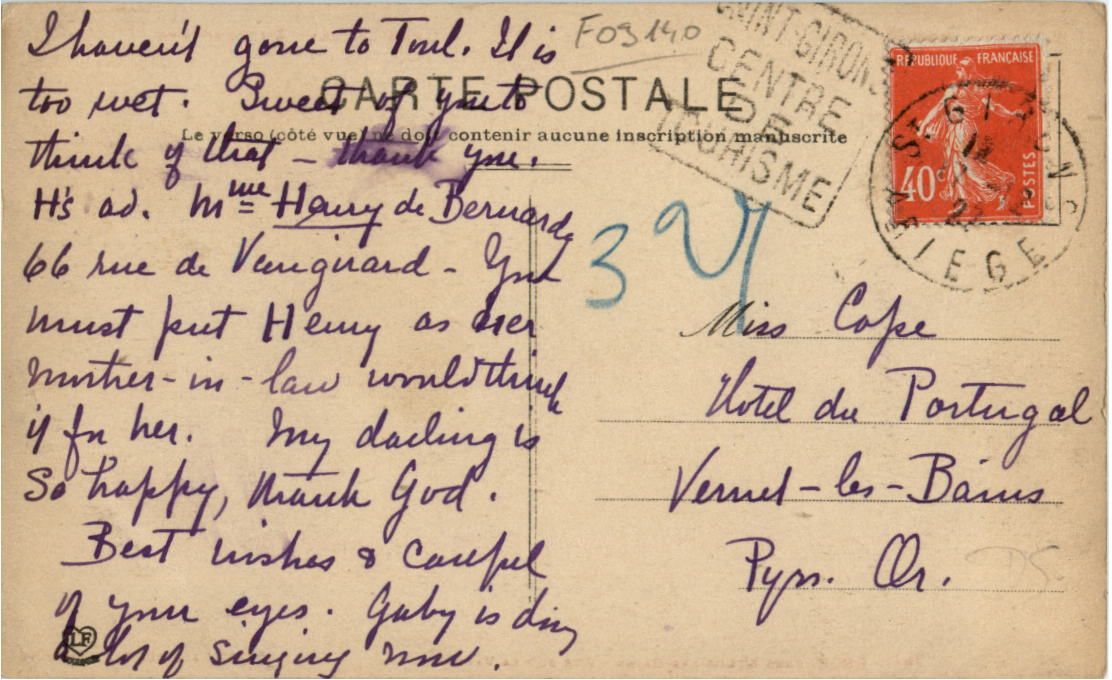 I haven't gone to Toul. It is
too wet. Sweet of you to
think of that – thank you.
H's ad. Mme Henry de Bernard
66 rue de Vaugirard – You
must put Henry as her
mother-in-law would think
if for her. My darling is
So happy, thank God.
Best wishes & careful
of your eyes. Gaby is doing
a lot of singing now.
LF
F09140
CARTE POSTALE
Le verso (côté vue) ne doit contenir aucune inscription manuscrite
SAINT-GIRONS
CENTRE
DE
TOURISME
REPUBLIQUE FRANÇAISE
40c
POSTES
ST GIRONS
ARIEGE
Miss Cope
Hotel du Portugal
Vernet-les-Bains
Pyrs. Or.